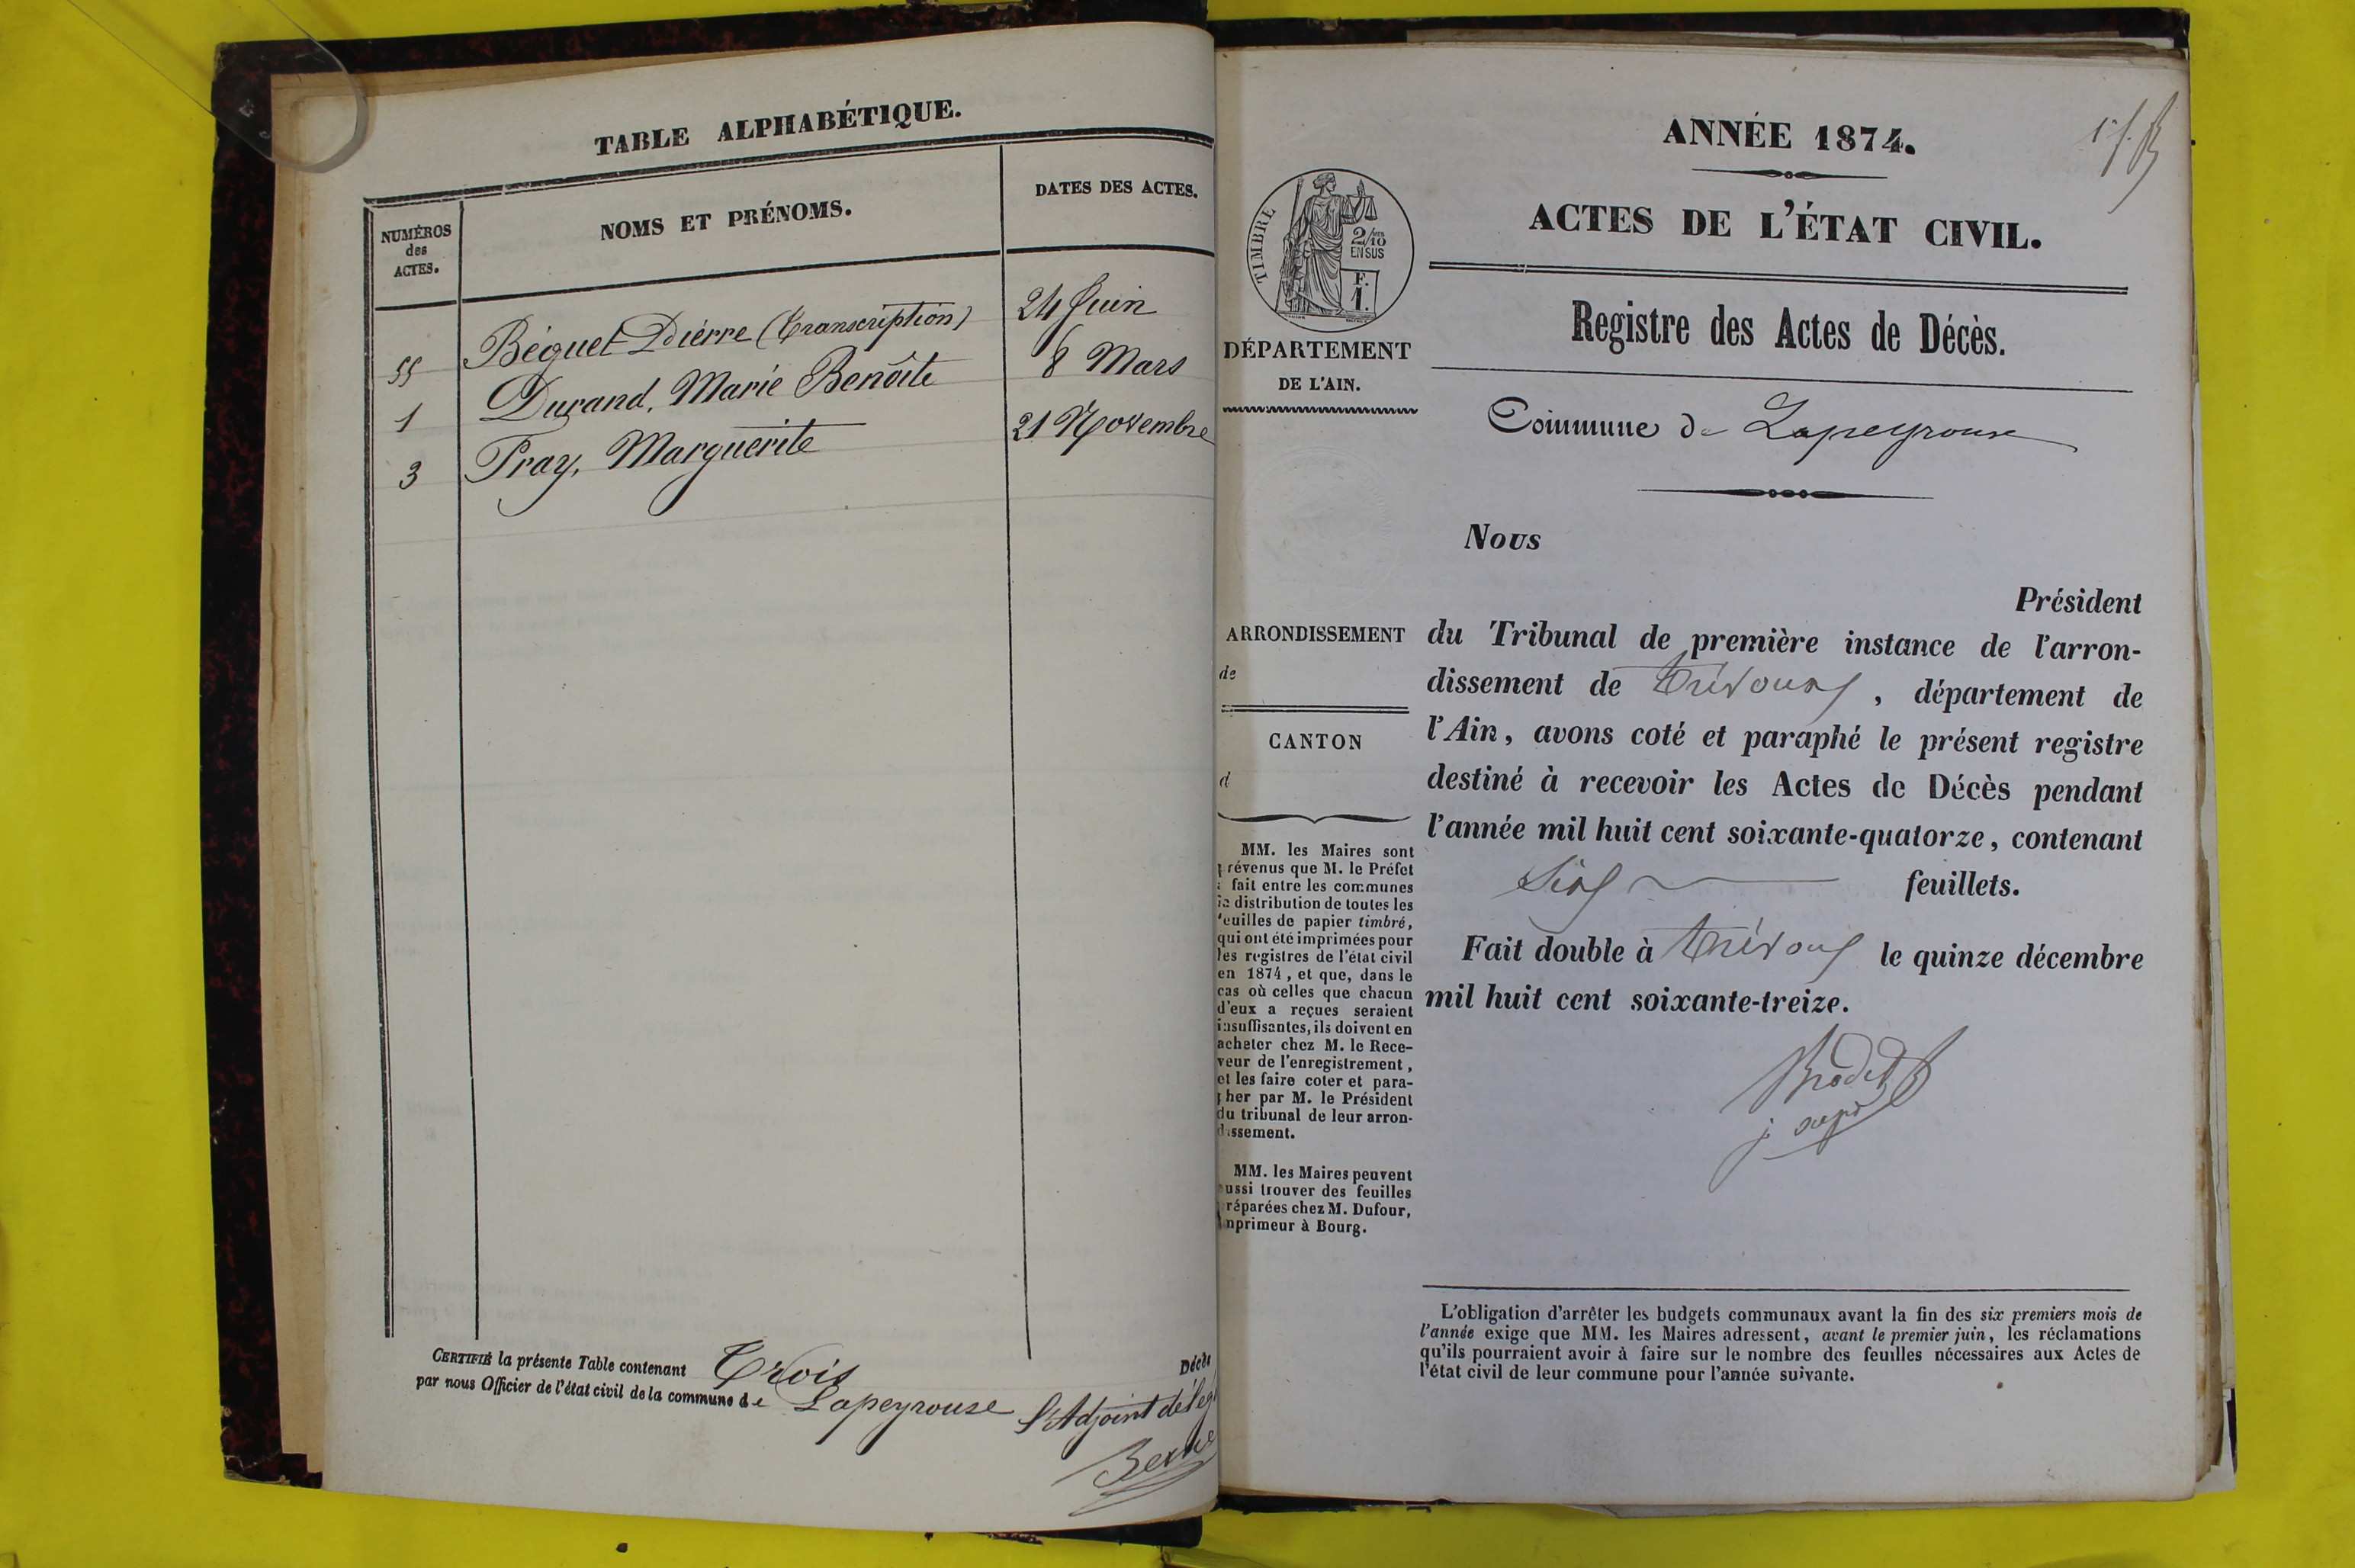 TABLE ALPHABÉTIQUE.
NUMÉROS
des
ACTES.
NOMS ET PRÉNOMS.
DATES DES ACTES.
55 Béguet Pierre (Transcription) 24 Juin
1 Durand, Marie Benoîte 8 Mars
3 Pray, Marguerite 21 Novembre
CERTIFIÉ la présente Table contenant Trois Décès
par nous Officier de l'état civil de la commune de Lapeyrouse
L'Adjoint délég
ANNÉE 1874.
ACTES DE L'ÉTAT CIVIL.
TIMBRE
2/10
EN SUS
F.
1.
Registre des Actes de Décès.
DÉPARTEMENT
DE L'AIN.
Commune de Lapeyrouse
Nous
Président
du Tribunal de première instance de l'arron-
dissement de Trévoux, département de
l'Ain, avons coté et paraphé le présent registre
destiné à recevoir les Actes de Décès pendant
l'année mil huit cent soixante-quatorze, contenant
Six feuillets.
Fait double à Trévoux le quinze décembre
mil huit cent soixante-treize.
ARRONDISSEMENT
de
CANTON
d
MM. les Maires sont
prévenus que M. le Préfet
a fait entre les communes
la distribution de toutes les
feuilles de papier timbré,
qui ont été imprimées pour
les registres de l'état civil
en 1874, et que, dans le
cas où celles que chacun
d'eux a reçues seraient
insuffisantes, ils doivent en
acheter chez M. le Rece-
veur de l'enregistrement,
et les faire coter et para-
pher par M. le Président
du tribunal de leur arron-
dissement.
MM. les Maires peuvent
aussi trouver des feuilles
préparées chez M. Dufour,
imprimeur à Bourg.
L'obligation d'arrêter les budgets communaux avant la fin des six premiers mois de
l'année exige que MM. les Maires adressent, avant le premier juin, les réclamations
qu'ils pourraient avoir à faire sur le nombre des feuilles nécessaires aux Actes de
l'état civil de leur commune pour l'année suivante.